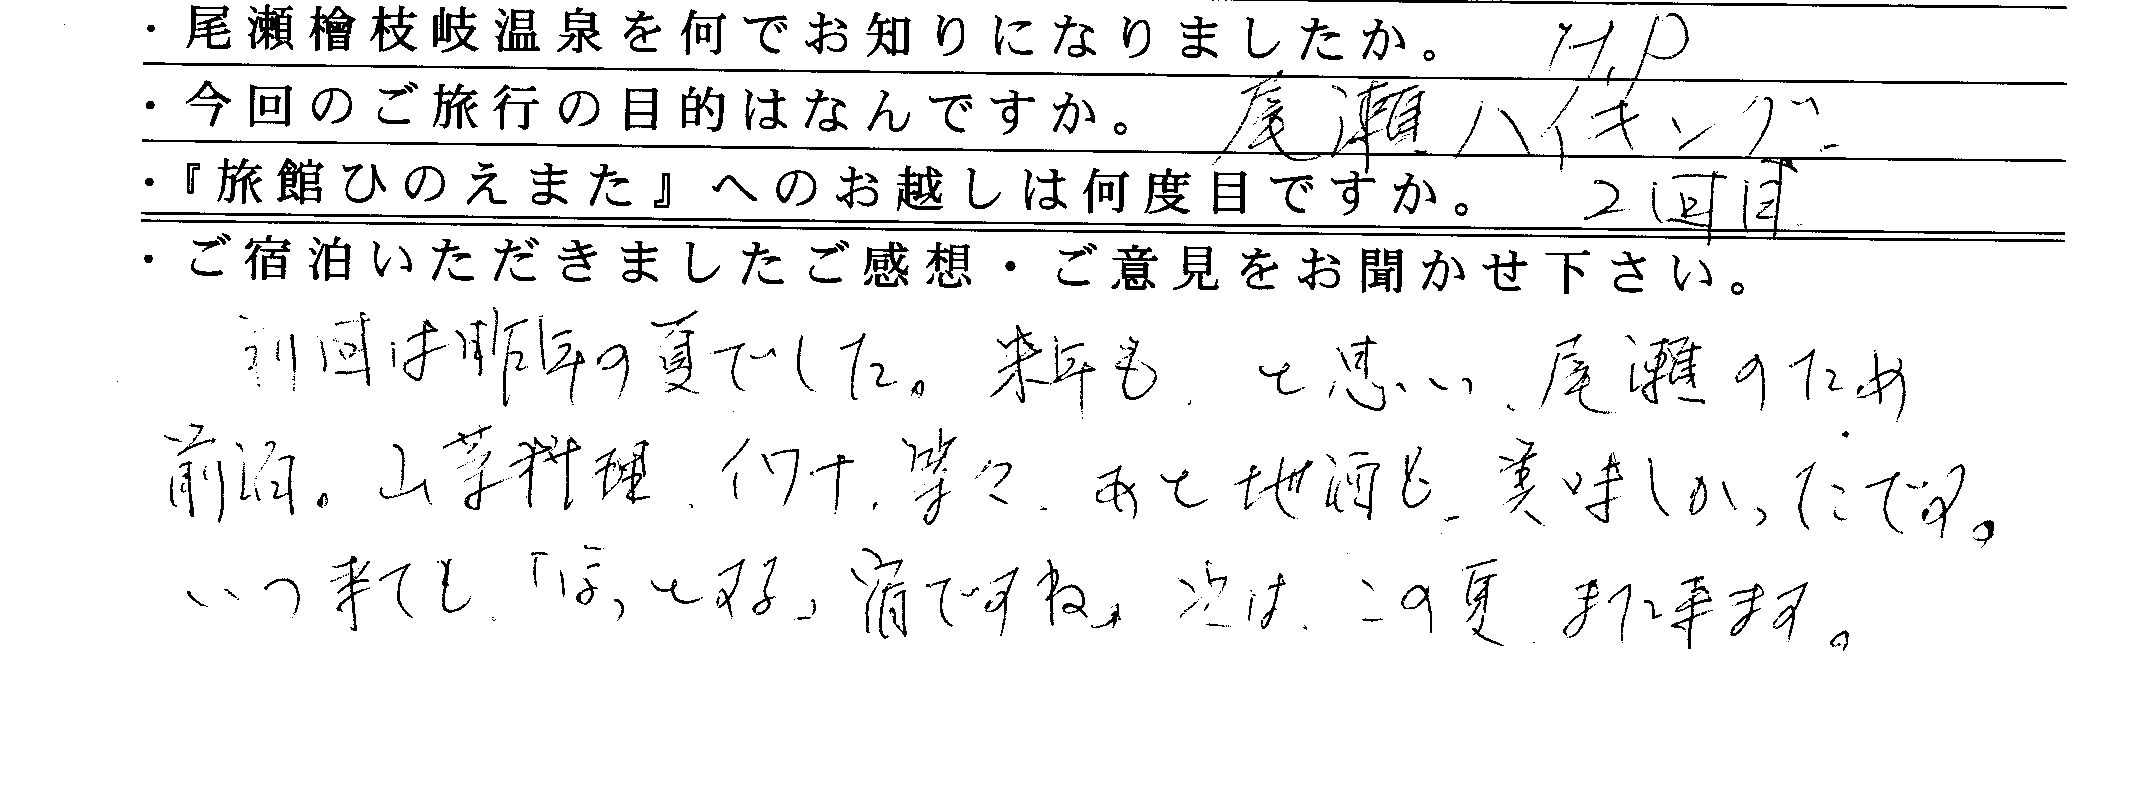 ・尾瀬檜枝岐温泉を何でお知りになりましたか。 H.P
・今回のご旅行の目的はなんですか。 尾瀬ハイキング
・『旅館ひのえまた』へのお越しは何度目ですか。 2回目
・ご宿泊いただきましたご感想・ご意見をお聞かせ下さい。
初回は昨年の夏でした。来年も、と思い、尾瀬のため
前泊。山菜料理、イワナ、等々、あと地酒も、美味しかったです。
いつ来ても、「ほっとする」宿ですね。次は、この夏、また来ます。